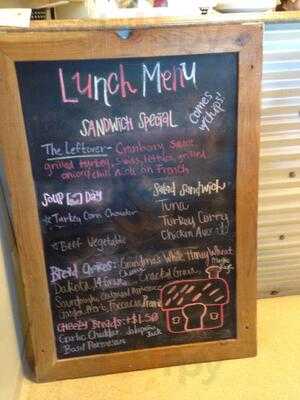 Lunch Menu
Comes w/chips!
SANDWICH SPECIAL
The Leftover - Cranberry Sauce
grilled turkey, swiss, lettuce, grilled
onion, on French
SOUP Day
* Turkey Corn Chowder
* Beef Vegetable
Salad Sandwich
Tuna
Turkey Curry
Chicken
Bread Choices: Grandma's White, Honey Wheat
Dakota, 14 Grain, Cracked Grain
Sourdough, Oatmeal
Garden Herb, Focaccia, French
CHEEZY Breads: +$1.50
Garlic Cheddar Jalapeño
Basil Parmesan Jack